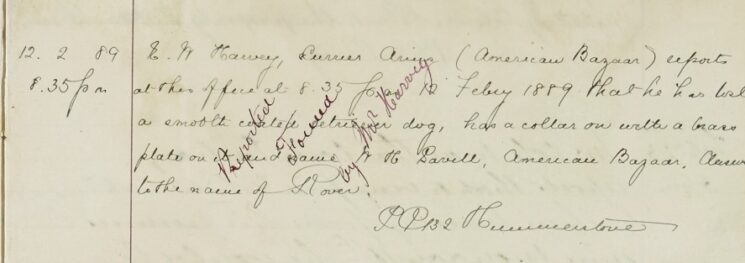 12. 2 89 E. W. Harvey, Currier Arms (American Bazaar) reports
8.35 pm at this office at 8.35 pm 12 Febry 1889 that he has lost
a smooth coated retriever dog, has a collar on with a brass
plate on it and name W H Pavitt, American Bazaar. Answ
to the name of Rover.
P.P 132 Hummerstone
Reported
Found
by Mr Harvey